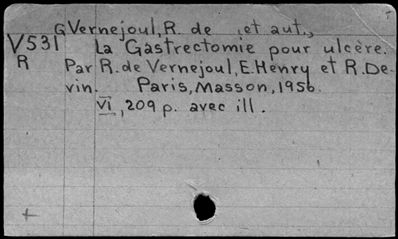 G Vernejoul, R. de , et aut.,
V531 La Gastrectomie pour ulcère.
R Par R. de Vernejoul, E. Henry et R. De-
vin. Paris, Masson, 1956.
VI, 209 p. avec ill.
+